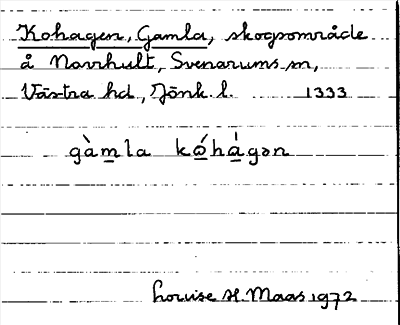 Kohagen, Gamla, skogsområde
å Norrhult, Svenarums sn,
Västra hd, Jönk. l. 1333
gàm̲la kώ̲hà̲gən
Louise H. Maas 1972